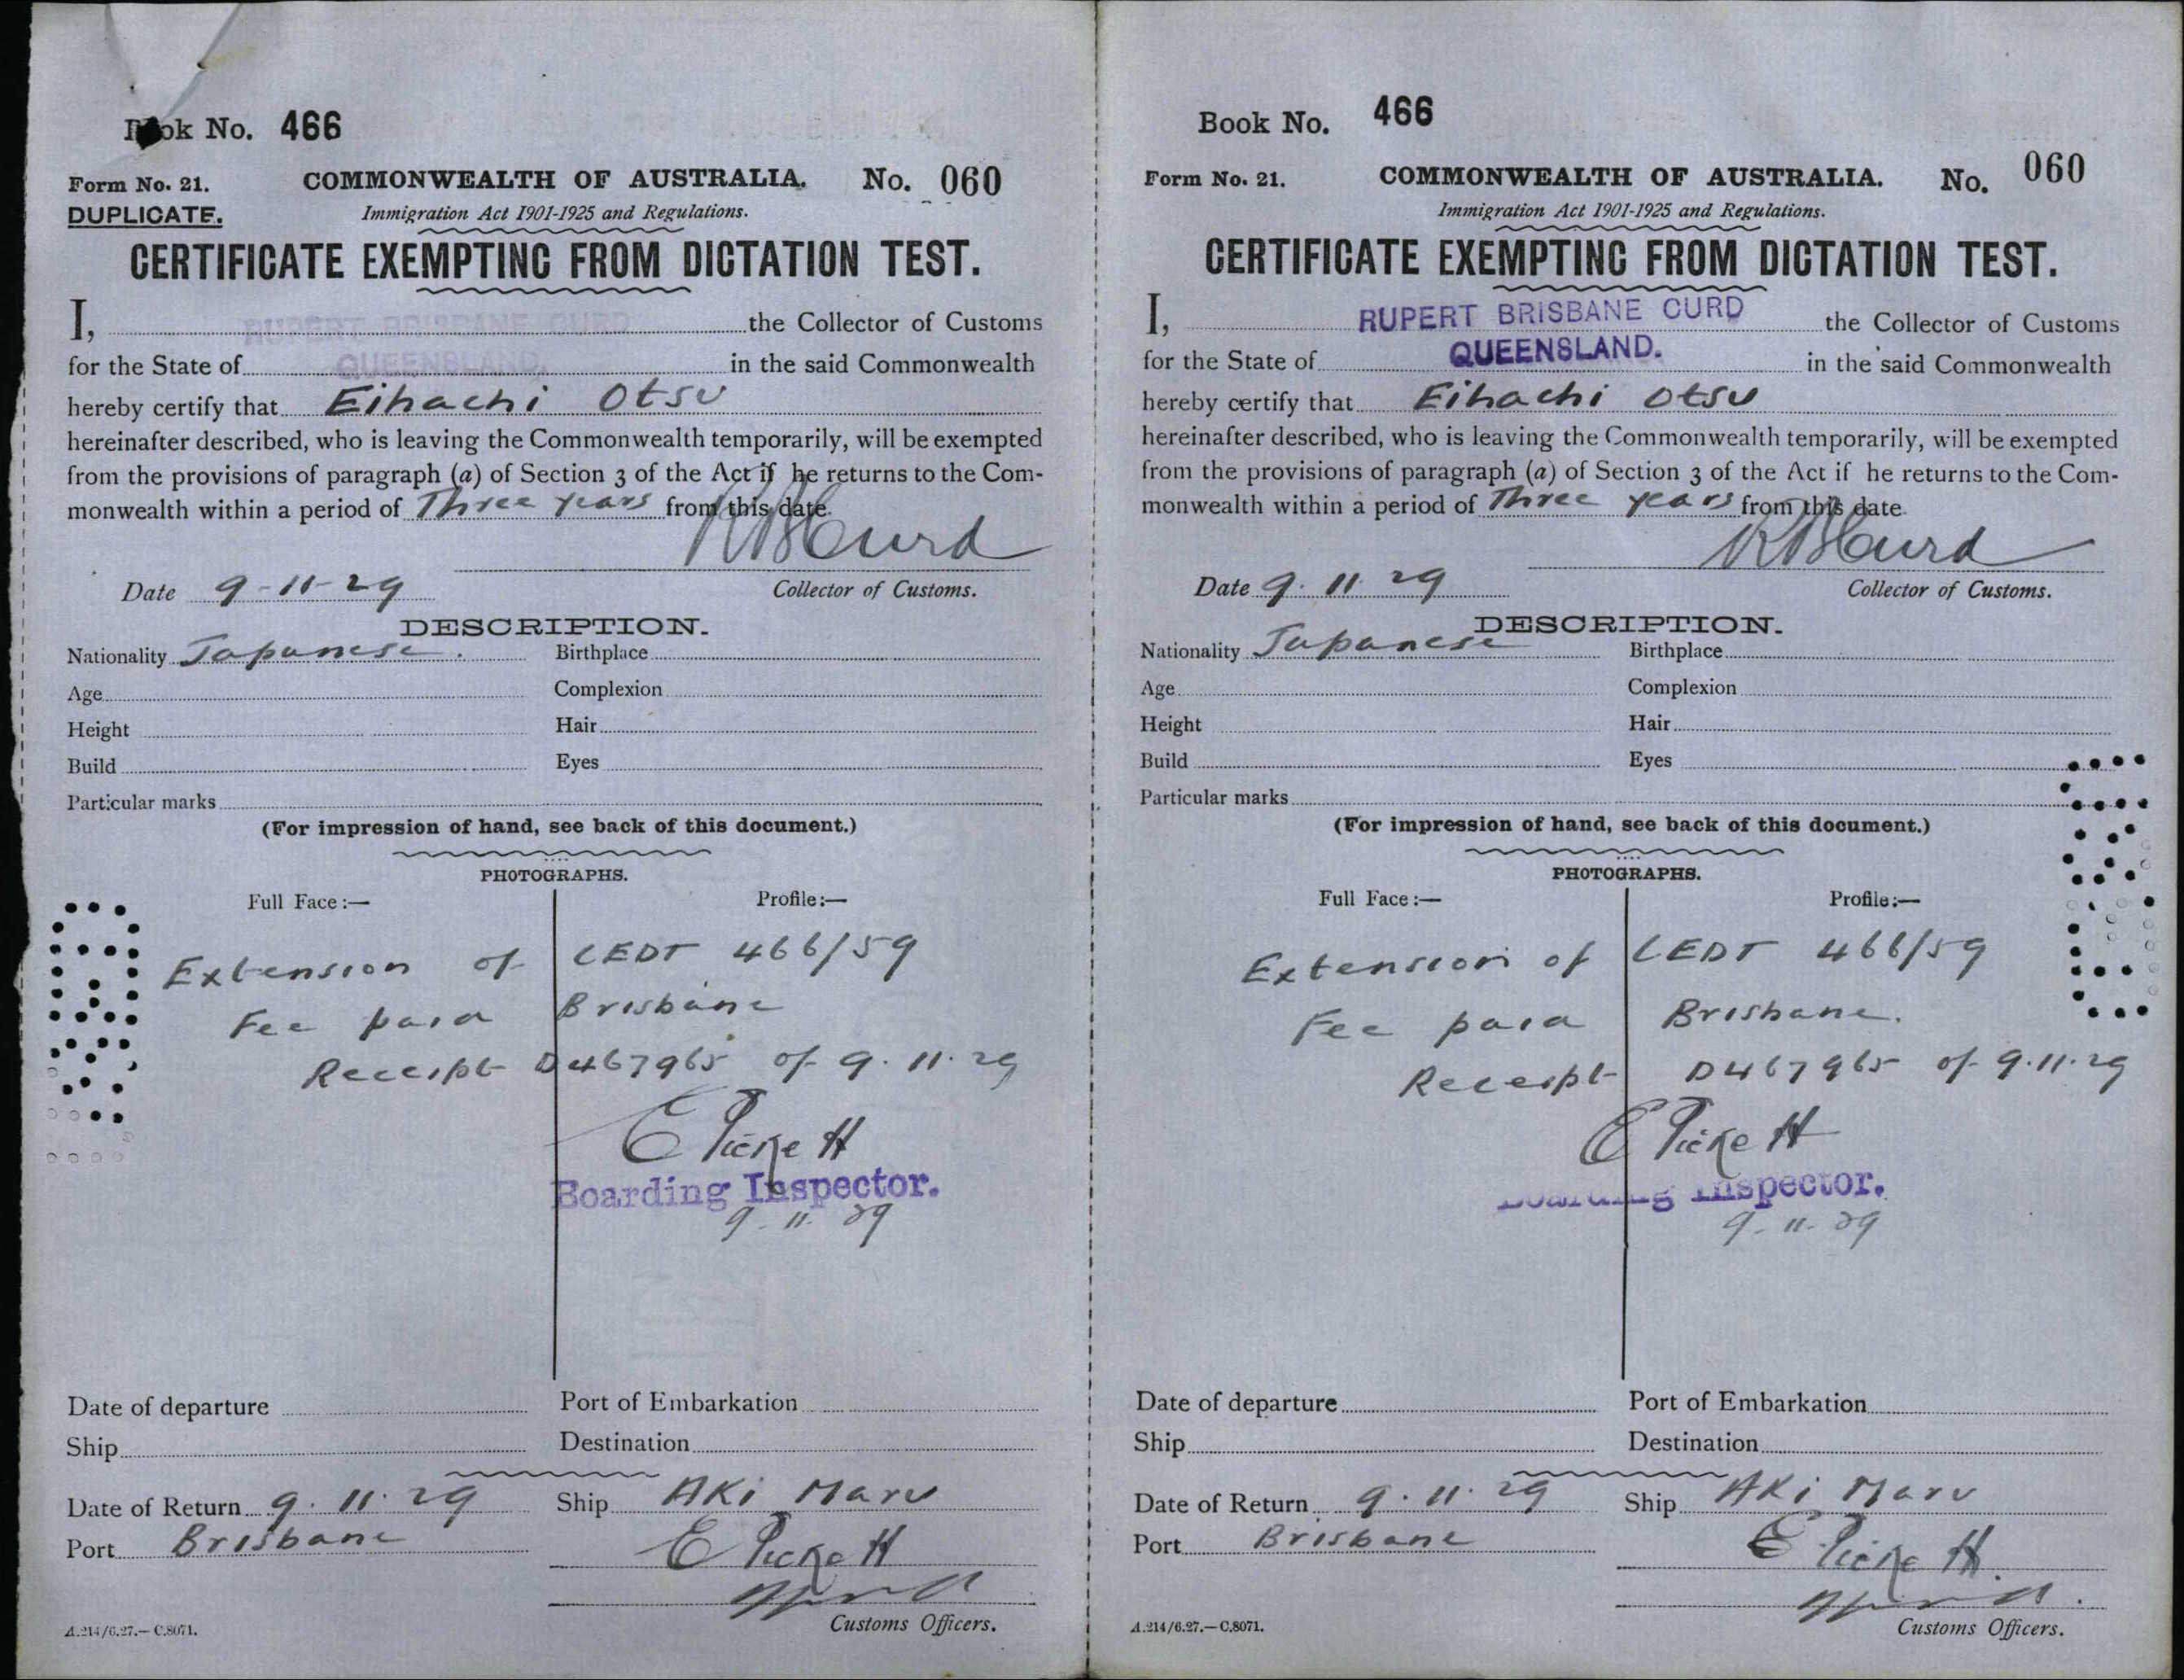 Book No. 466
Form No. 21. COMMONWEALTH OF AUSTRALIA. No. 060
DUPLICATE. Immigration Act 1901-1925 and Regulations.
CERTIFICATE EXEMPTING FROM DICTATION TEST.
I, RUPERT BRISBANE CURD the Collector of Customs
for the State of QUEENSLAND. in the said Commonwealth
hereby certify that Eihachi Otsu
hereinafter described, who is leaving the Commonwealth temporarily, will be exempted
from the provisions of paragraph (a) of Section 3 of the Act if he returns to the Com-
monwealth within a period of Three years from this date.
R B Curd
Date 9-11-29 Collector of Customs.
DESCRIPTION.
Nationality Japanese. Birthplace
Age Complexion
Height Hair
Build Eyes
Particular marks
(For impression of hand, see back of this document.)
PHOTOGRAPHS.
Full Face:— Profile:—
Extension of CEDT 466/59
Fee paid Brisbane
Receipt D467965 of 9.11.29
E Pickett
Boarding Inspector.
9.11.29
Date of departure Port of Embarkation
Ship Destination
Date of Return 9.11.29 Ship AKi Maru
Port Brisbane E Pickett
Customs Officers.
A.214/6.27.—C.8071.
Book No. 466
Form No. 21. COMMONWEALTH OF AUSTRALIA. No. 060
Immigration Act 1901-1925 and Regulations.
CERTIFICATE EXEMPTING FROM DICTATION TEST.
I, RUPERT BRISBANE CURD the Collector of Customs
for the State of QUEENSLAND. in the said Commonwealth
hereby certify that Eihachi Otsu
hereinafter described, who is leaving the Commonwealth temporarily, will be exempted
from the provisions of paragraph (a) of Section 3 of the Act if he returns to the Com-
monwealth within a period of Three years from this date.
R B Curd
Date 9.11.29 Collector of Customs.
DESCRIPTION.
Nationality Japanese Birthplace
Age Complexion
Height Hair
Build Eyes
Particular marks
(For impression of hand, see back of this document.)
PHOTOGRAPHS.
Full Face:— Profile:—
Extension of CEDT 466/59
Fee paid Brisbane.
Receipt D467965 of 9.11.29
E Pickett
Boarding Inspector.
9.11.29
Date of departure Port of Embarkation
Ship Destination
Date of Return 9.11.29 Ship AKi Maru
Port Brisbane E Pickett
Customs Officers.
A.214/6.27.—C.8071.